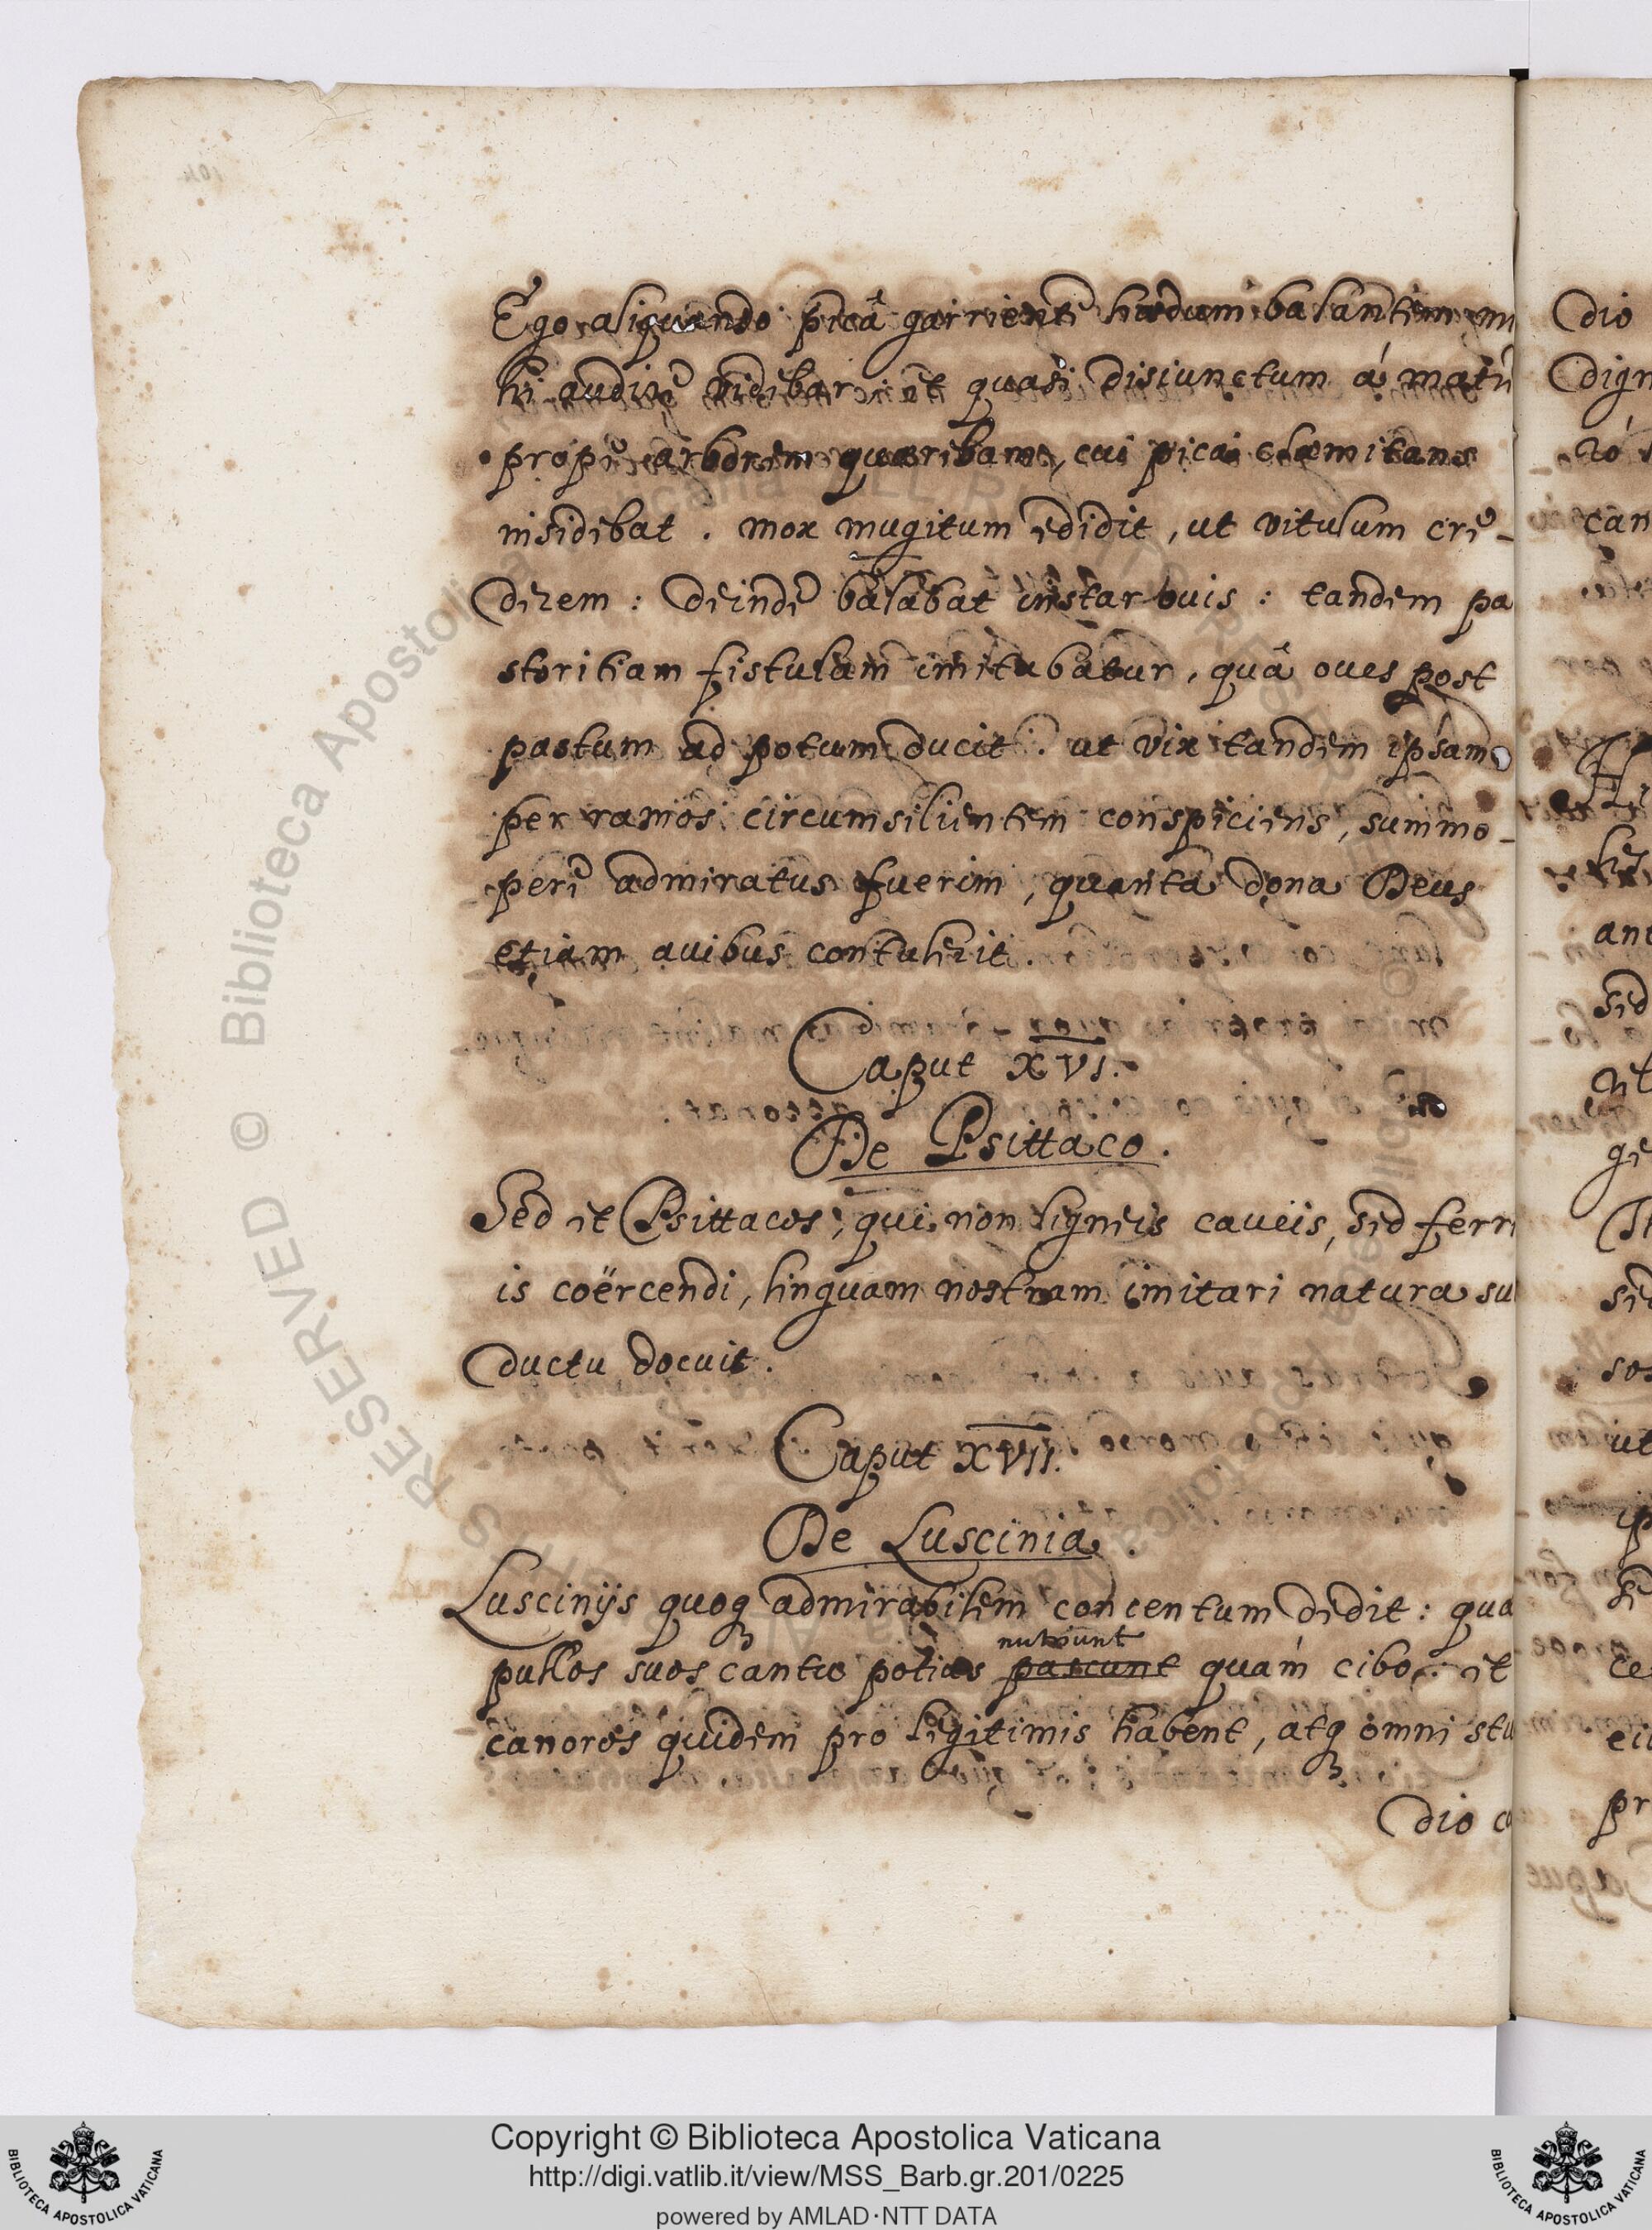 Ego aliquando picâ garriente hœdum balantem mi
hi audire videbar: et quasi disiunctum á matre
propè arborem quœribam, cui pica clamitans
insidebat. mox mugitum edidit, ut vitulum cre-
derem: deinde balabat instar ouis: tandem pa
storitiam fistulam imitabatur, quâ oues post
pastum ad potum ducit: ut vix tandem ipsam
per ramos circumsilientem conspiciens, summo-
pere admiratus fuerim, quanta dona Deus
etiam auibus contulerit.
Caput XVI.
De Psittaco.
Sed et Psittacos, qui non ligneis caueis, sed ferre
is coërcendi, linguam nostram imitari natura su
ductu docuit.
Caput XVII.
De Luscinia.
Luscinijs quoq admirabilem concentum dedit: qua
nutriunt
pullos suos cantu potius pascunt quám cibo: et
canoros quidem pro legitimis habent, atq omni stu
dio c
Dio
can
ant
sed
ut
ge
sed
sos
ut
ce
pr
Copyright © Biblioteca Apostolica Vaticana
http://digi.vatlib.it/view/MSS_Barb.gr.201/0225
powered by AMLAD·NTT DATA
BIBLIOTECA APOSTOLICA VATICANA
BIBLIOTECA APOSTOLICA VATICANA